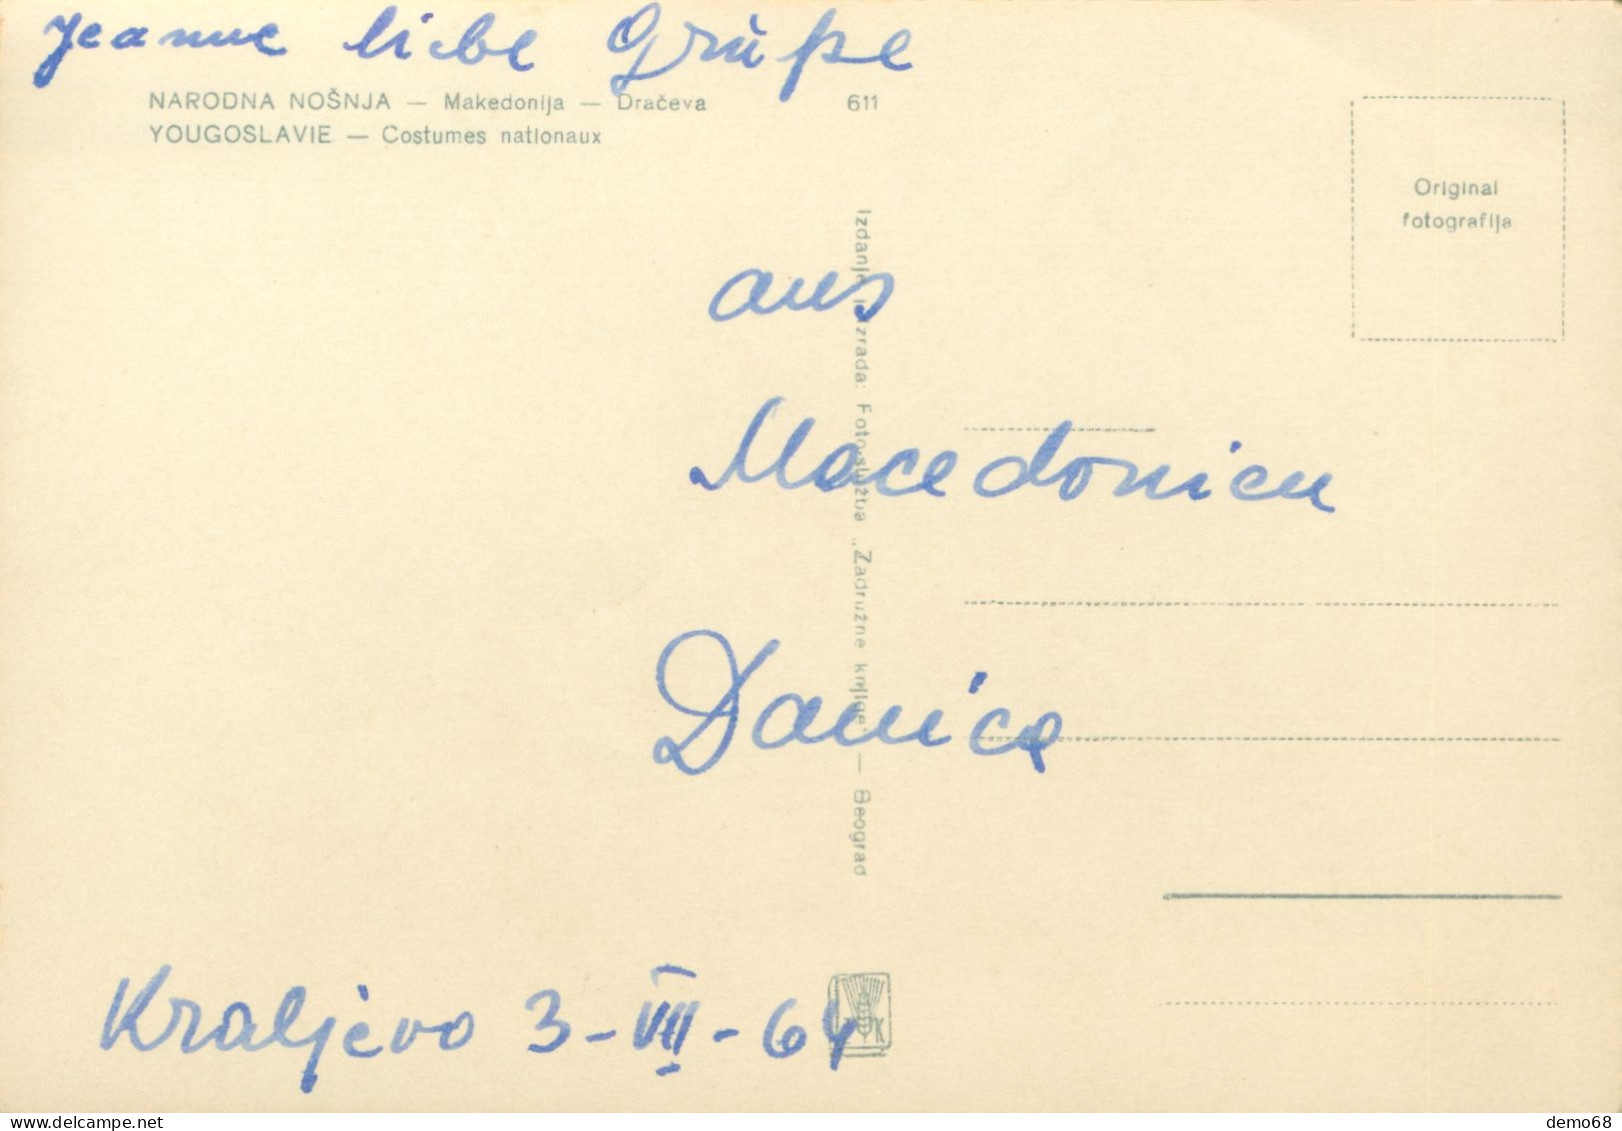 Jeanne liebe Grüße
NARODNA NOŠNJA — Makedonija — Dračeva 611
YOUGOSLAVIE — Costumes nationaux
Original
fotografija
Izdanje i izrada: Foto-služba „Zadružne knjige“ — Beograd
aus
Macedonien
Danica
Kraljevo 3-VIII-64
ZK
delcampe.net
demo68